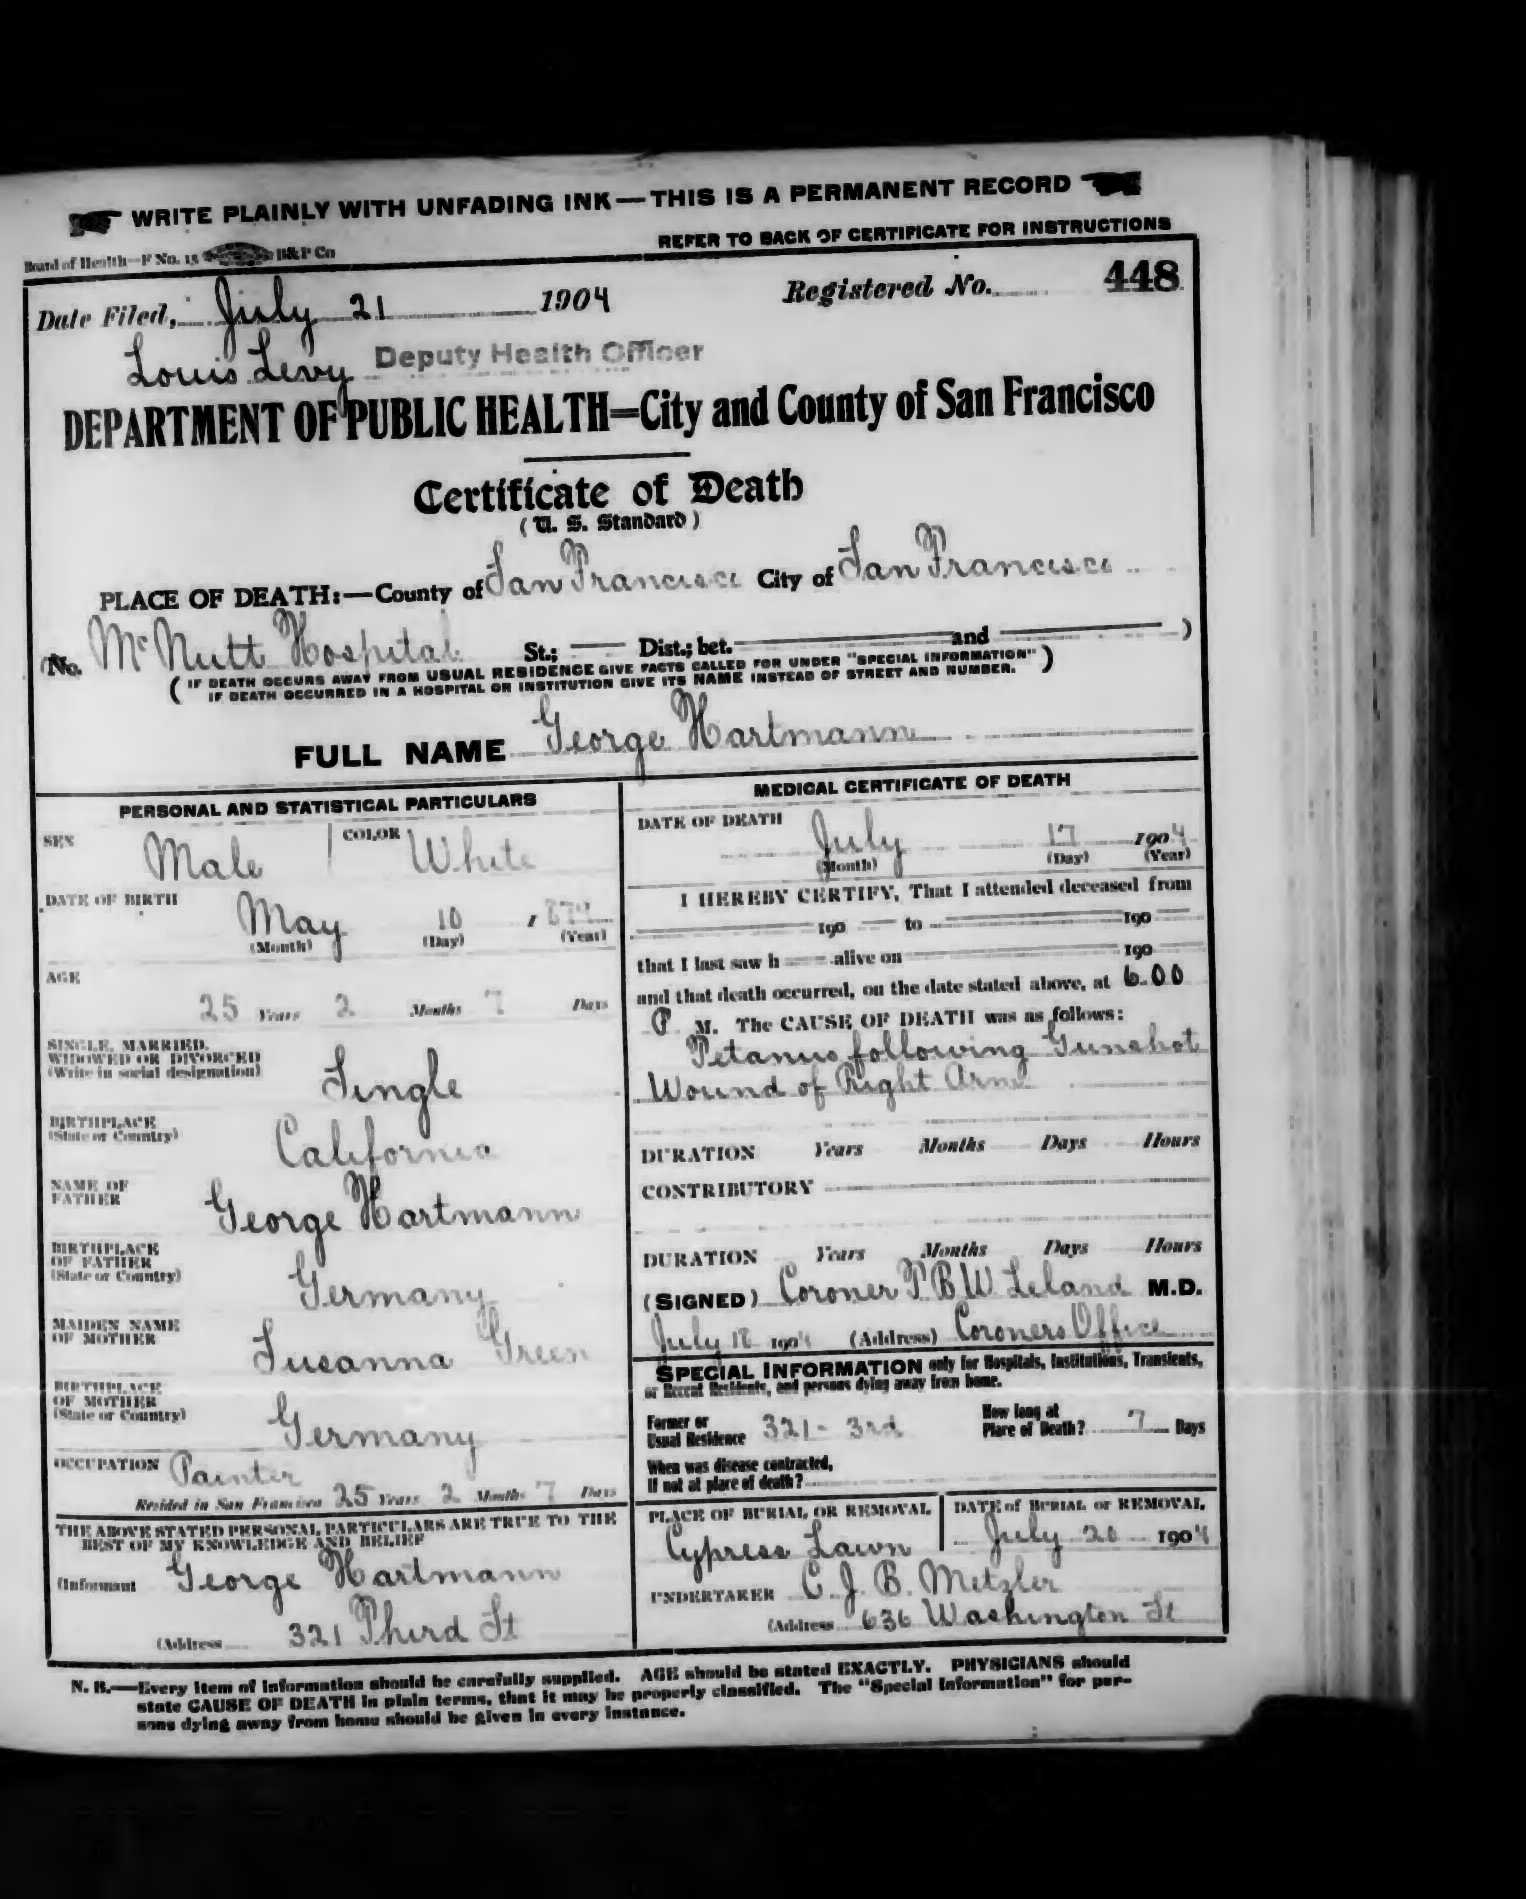 WRITE PLAINLY WITH UNFADING INK—THIS IS A PERMANENT RECORD
Board of Health—F No. 15 H&P Co
REFER TO BACK OF CERTIFICATE FOR INSTRUCTIONS
Date Filed, July 21 1904
Registered No. 448
Louis Levy Deputy Health Officer
DEPARTMENT OF PUBLIC HEALTH=City and County of San Francisco
Certificate of Death
(U. S. Standard)
PLACE OF DEATH:—County of San Francisco City of San Francisco
(No. McNutt Hospital St.; Dist.; bet. and )
(IF DEATH OCCURS AWAY FROM USUAL RESIDENCE GIVE FACTS CALLED FOR UNDER "SPECIAL INFORMATION")
IF DEATH OCCURRED IN A HOSPITAL OR INSTITUTION GIVE ITS NAME INSTEAD OF STREET AND NUMBER.
FULL NAME George Hartmann
PERSONAL AND STATISTICAL PARTICULARS
SEX Male COLOR White
DATE OF BIRTH
May 10, 1879
(Month) (Day) (Year)
AGE
25 Years 2 Months 7 Days
SINGLE, MARRIED,
WIDOWED OR DIVORCED
(Write in social designation)
Single
BIRTHPLACE
(State or Country)
California
NAME OF
FATHER
George Hartmann
BIRTHPLACE
OF FATHER
(State or Country)
Germany
MAIDEN NAME
OF MOTHER
Susanna Green
BIRTHPLACE
OF MOTHER
(State or Country)
Germany
OCCUPATION Painter
Resided in San Francisco 25 Years 2 Months 7 Days
THE ABOVE STATED PERSONAL PARTICULARS ARE TRUE TO THE
BEST OF MY KNOWLEDGE AND BELIEF
(Informant George Hartmann
(Address 321 Third St
MEDICAL CERTIFICATE OF DEATH
DATE OF DEATH
July 17 1904
(Month) (Day) (Year)
I HEREBY CERTIFY, That I attended deceased from
190 to 190
that I last saw h alive on 190
and that death occurred, on the date stated above, at 6.00
P M. The CAUSE OF DEATH was as follows:
Tetanus following Gunshot
Wound of Right Arm
DURATION Years Months Days Hours
CONTRIBUTORY
DURATION Years Months Days Hours
(SIGNED) Coroner T B W Leland M.D.
July 18 1904 (Address) Coroners Office
SPECIAL INFORMATION only for Hospitals, Institutions, Transients,
or Recent Residents, and persons dying away from home.
Former or
Usual Residence 321 - 3rd
How long at
Place of Death? 7 Days
When was disease contracted,
If not at place of death?
PLACE OF BURIAL OR REMOVAL
Cypress Lawn
DATE of BURIAL or REMOVAL
July 20 1904
UNDERTAKER C. J. B. Metzler
(Address 636 Washington St
N. B.—Every item of information should be carefully supplied. AGE should be stated EXACTLY. PHYSICIANS should
state CAUSE OF DEATH in plain terms, that it may be properly classified. The "Special Information" for per-
sons dying away from home should be given in every instance.